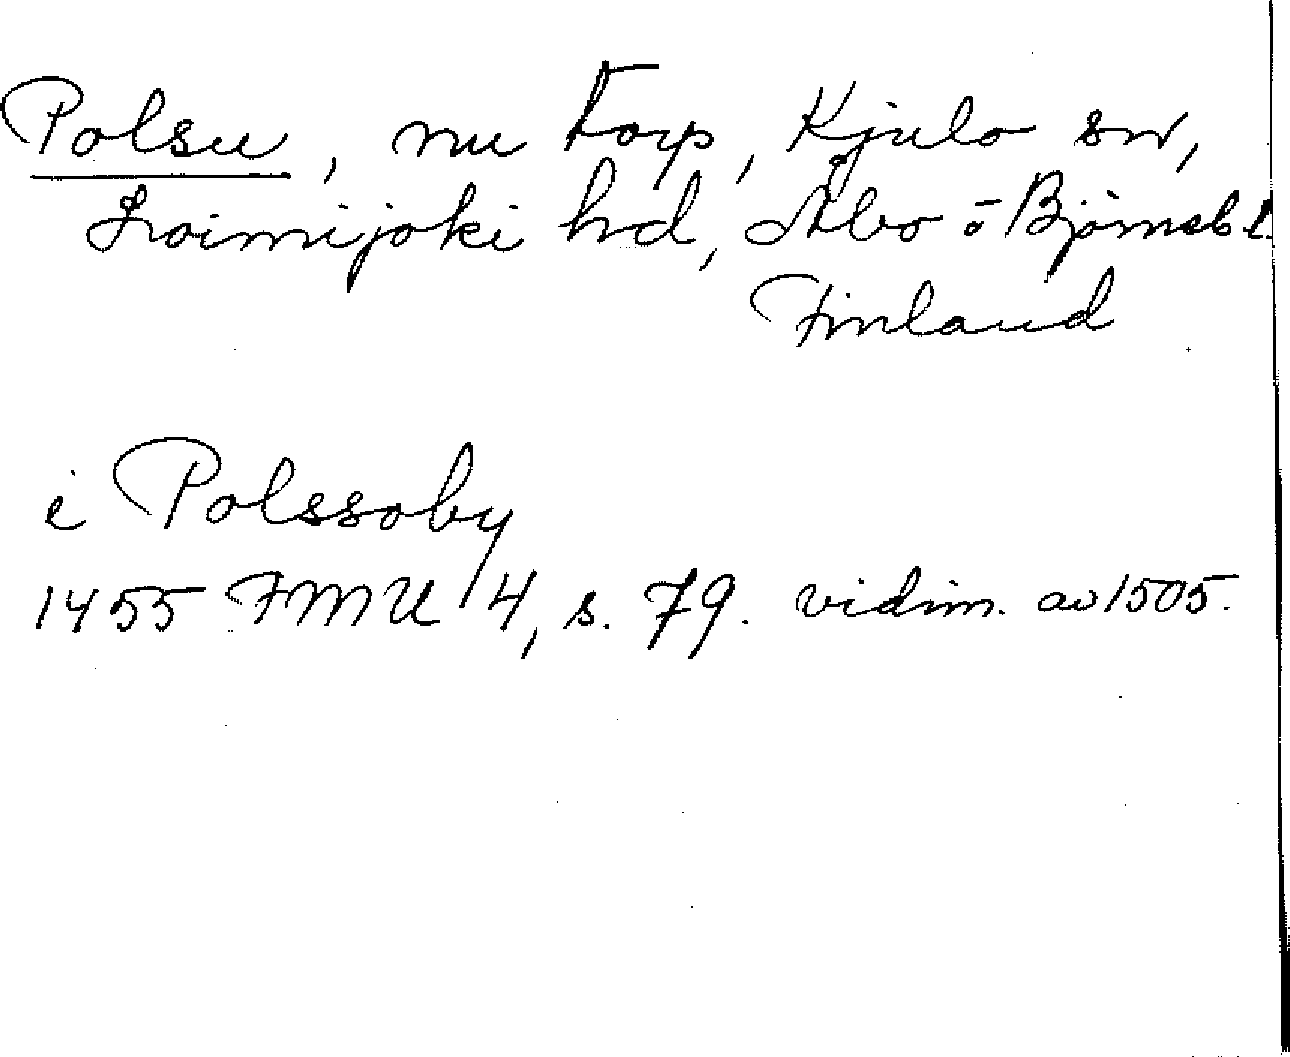 Polsu, nu torp, Kjulo sn,
Loimijoki hd, Åbo o Björneb l.
Finland
i Polssoby
1455 FMU 4, s. 79. vidim. av 1505.